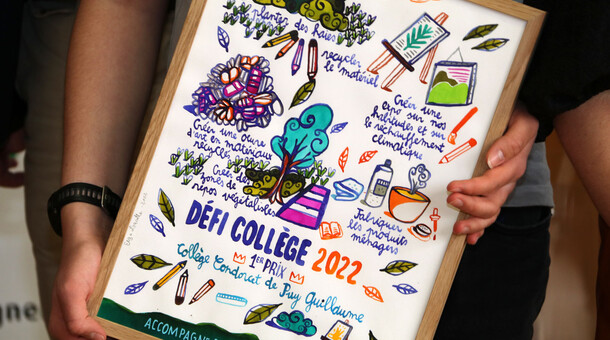 planter des haies
recycler
le matériel
Créer une
expo sur nos
habitudes et sur
le réchauffement
climatique
Créer une œuvre
d'art en matériaux
recyclés
Créer des
zones de
repos végétalisées
Fabriquer
les produits
ménagers
DÉFI COLLÈGE 2022
1ER PRIX
Collège Condorcet de Puy Guillaume
ACCOMPAGNE
gne